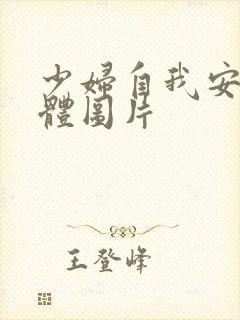 少婦自我安
體圖片
王登峰